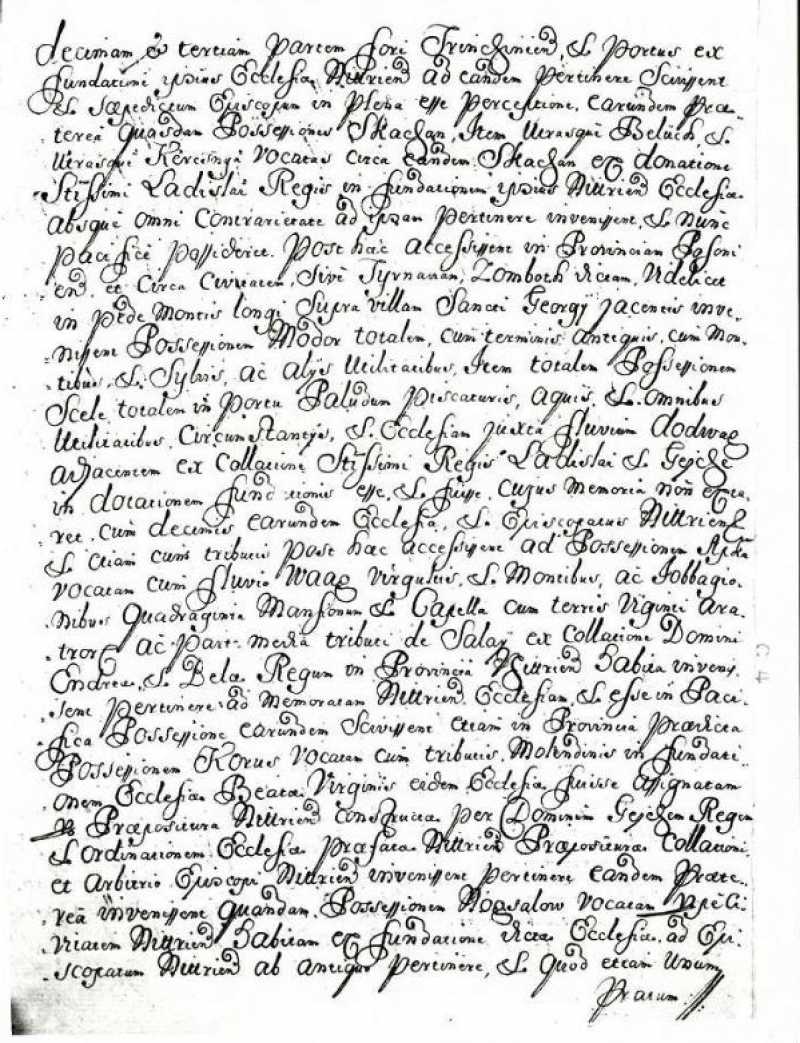 decimam & tertiam Partem fori Trinchiniens, & Portus ex
fundationi ipsius Ecclesiæ Nittrien ad eandem Pertinere Scivissent
& sæpedictum Episcopum in Plena esse Perceptione, earundem Præ-
terea quasdam Possessiones Skachan, Item Utrasque Beluch, &
Utrasque Kercisnya Vocatas circa eandem Skachan ex donatione
Stissimi Ladislai Regis in fundationem ipsius Nittrien Ecclesiæ
absque omni Contrarietate ad ipsam pertinere invenissent, & nunc
pacifice possidere. Post hac accessissent in Provinciam Posoni
-en. et Circa Civitatem, Sive Tyrnaviam, Zomboth dictam, Videlicet
in Pede Montis longi Supra Villam Sancti Georgÿ jacentis inve-
-nissent Possessionem Modor totalem, cum terminis Antiquis, cum Mon-
-tibus, & Sylvis, ac alÿs Utilitatibus, Item totalem Possessionem
Scele totalem in Portu Paludum Piscaturis, aquis, & omnibus
Utilitatibus, Circumstantÿs, & Ecclesiam juxta fluvium Dodwag
adjacentem ex Collatione Stissimi Regis Ladislai & Geÿche
in dotationem functionis esse, & fuisse, cujus Memoria non exta-
ret, cum decimis earundem Ecclesia, & Episcopatus Nittrien
& etiam cum tributis Post hac accessissent ad Possessionem
vocatam cum fluvio Waag Virgultis, & Montibus, ac Jobbagio-
-nibus Quadraginta Mansionum & Capella cum terris Viginti Ara-
-tror ac Part. media tributi de Salay ex Collatione Domini
Endreæ, & Belæ Regum in Provincia Nittrien habita invenis-
-sent pertinere ad Memoratam Nittrien Ecclesiam, & esse in Paci-
-fica Possessione earundem Scivissent etiam in Provincia Prædicta
Possessionem Korus Vocatam cum tributis, Molendinis in fundati-
onem Ecclesiæ Beatæ Virginis eidem Ecclesiæ fuisse assignatam
Præpositura Nittrien constructa per Dominum Geychem Regem
& ordinationem Ecclesiæ præfatæ Nittrien Præposituræ Collationi
et Arbitrio Episcopi Nittrien invenissent pertinere eandem Præte-
-rea invenissent quandam Possessionem Nogsalow Vocatam
Nittrien habitam ex fundatione dictæ Ecclesiæ ad Epi-
-scopatum Nittrien ab antiquo pertinere, & Quod etiam Unum
Pratum